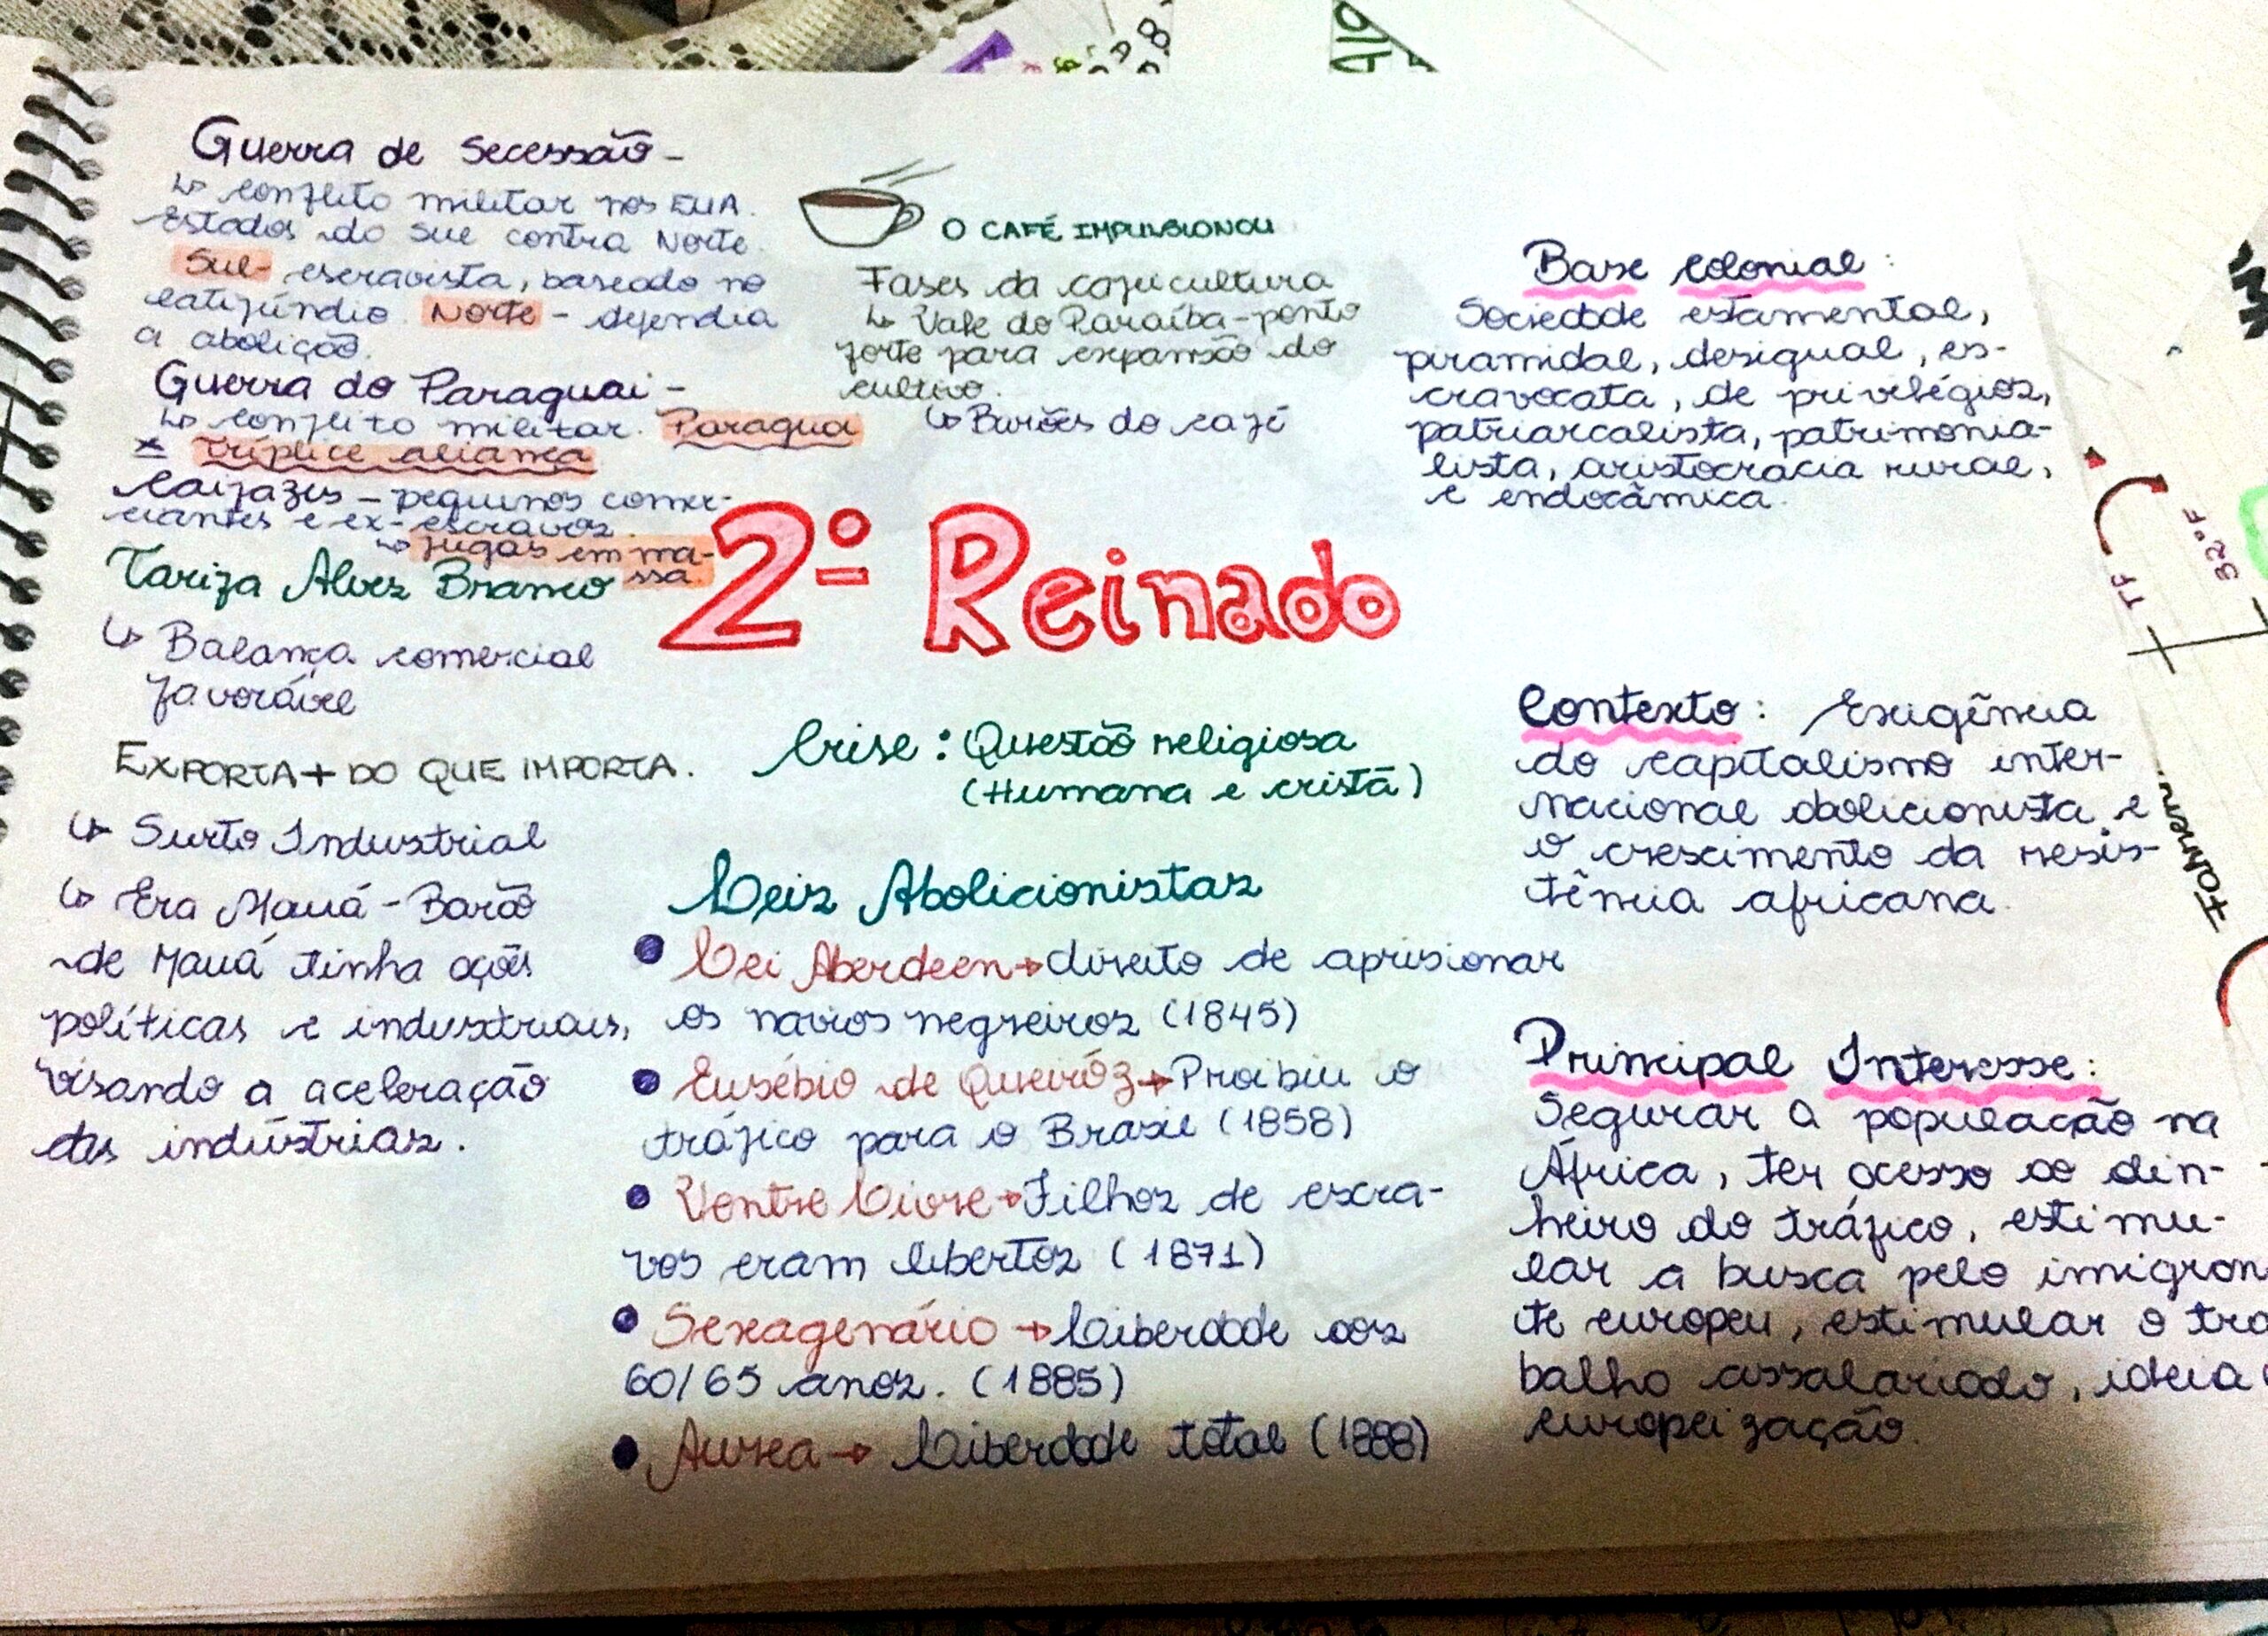 Guerra de Secessão -
↳ conflito militar nos EUA.
Estados do Sul contra Norte.
Sul - escravista, baseado no
latifúndio. Norte - defendia
a abolição.
Guerra do Paraguai -
↳ conflito militar. Paraguai
x Tríplice aliança
Caifazes - pequenos comer-
ciantes e ex-escravos.
↳ fugas em ma-
ssa.
Tarifa Alves Branco
↳ Balança comercial
favorável
EXPORTA + DO QUE IMPORTA.
↳ Surto Industrial
↳ Era Mauá - Barão
de Mauá tinha ações
políticas e industriais,
visando a aceleração
das indústrias.
O CAFÉ IMPULSIONOU
Fases da cafeicultura
↳ Vale do Paraíba - ponto
forte para expansão do
cultivo.
↳ Barões do café
2º Reinado
Crise: Questão religiosa
(Humana e cristã)
Leis Abolicionistas
• Lei Aberdeen → direito de aprisionar
os navios negreiros (1845)
• Eusébio de Queiróz → Proibiu o
tráfico para o Brasil (1858)
• Ventre Livre → Filhos de escra-
vos eram libertos (1871)
• Sexagenário → Liberdade aos
60/65 anos. (1885)
• Aurea → Liberdade total (1888)
Base colonial:
Sociedade estamental,
piramidal, desigual, es-
cravocata, de privilégios,
patriarcalista, patrimonia-
lista, aristocracia rural,
e endocâmica.
Contexto: Exigência
do capitalismo inter-
nacional abolicionista e
o crescimento da resis-
tência africana.
Principal Interesse:
Segurar a população na
África, ter acesso ao din-
heiro do tráfico, estimu-
lar a busca pelo imigran
te europeu, estimular o tra
balho assalariado, ideia
europeização.
TF
32°F
Fahren